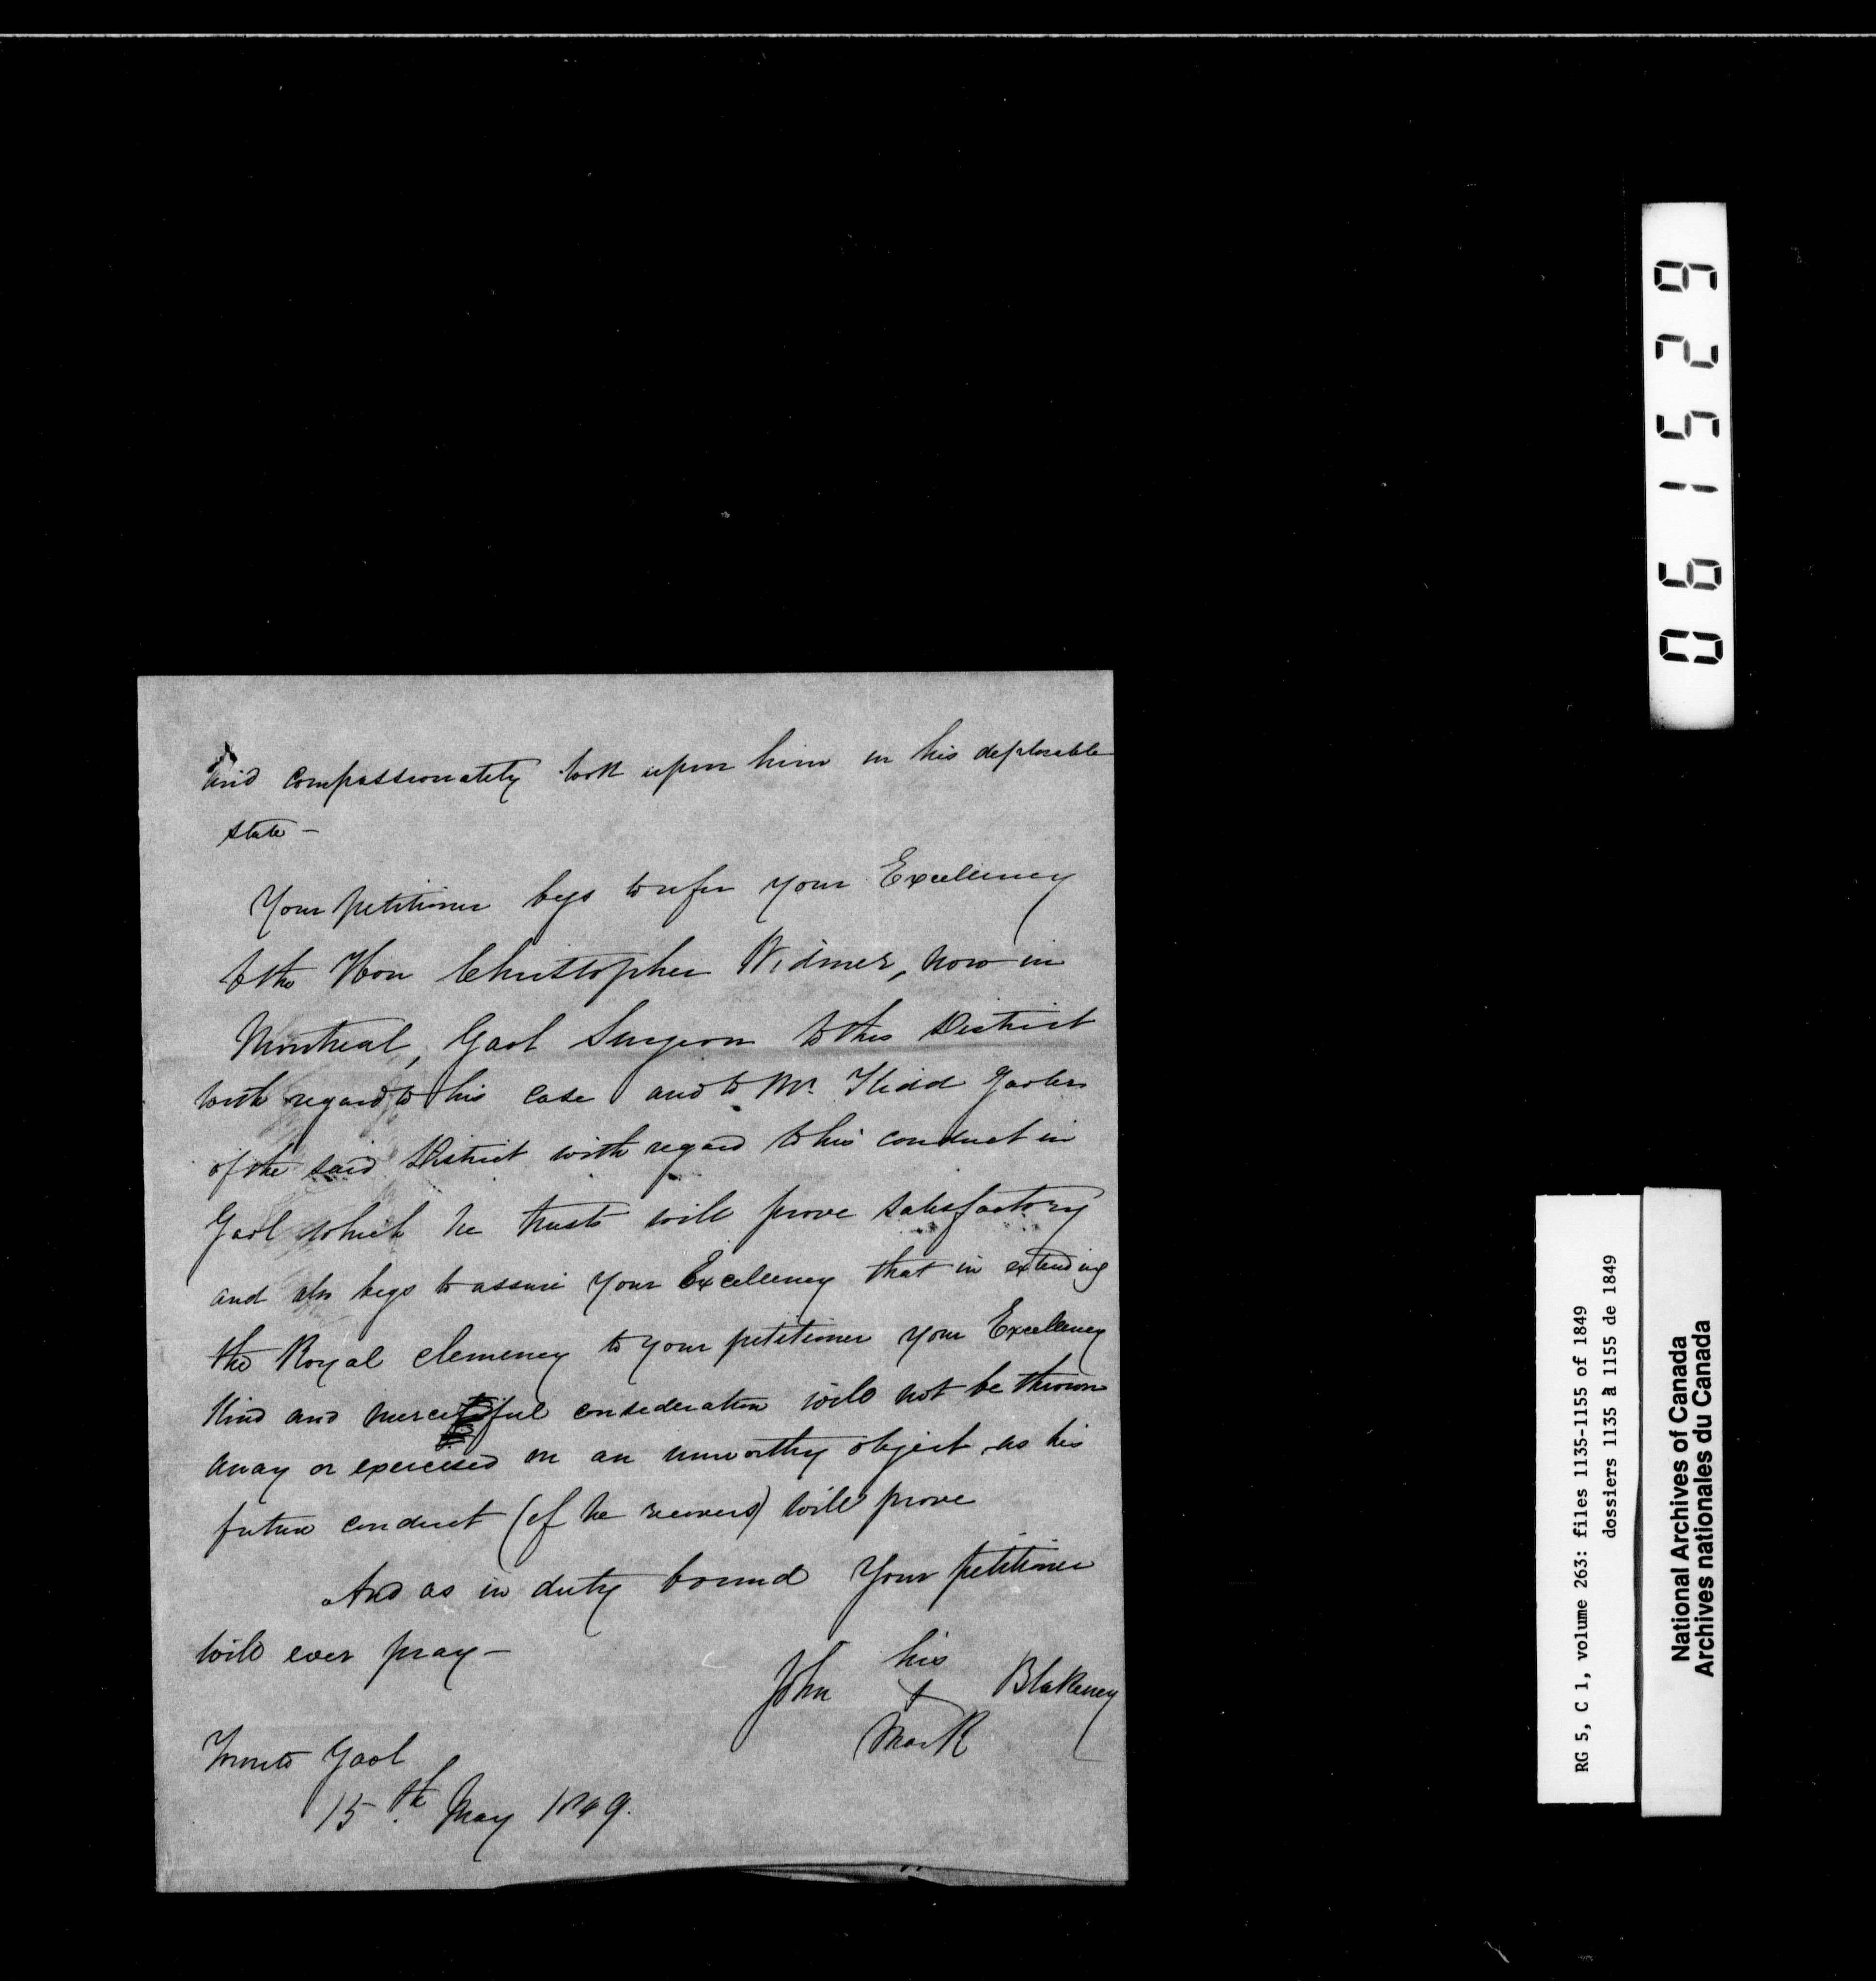 and compassionately look upon him in his deplorable
state –
Your petitioner begs to refer your Excellency
to the Hon Christopher Widmer, now in
Montreal, Gaol Surgeon to this District
with regard to his case and to Mr. Kidd Gaoler
of the said District with regard to his conduct in
Gaol which he trusts will prove satisfactory
and also begs to assure your Excellency that in extending
the Royal clemency to your petitioner your Excellency
kind and merciful consideration will not be thrown
away or exercised on an unworthy object as his
future conduct (if he recovers) will prove
And as in duty bound Your petitioner
will ever pray –
his
John + Blakeney
Mark
Toronto Gaol
15th May 1849.
061529
RG 5, C 1, volume 263: files 1135-1155 of 1849
dossiers 1135 à 1155 de 1849
National Archives of Canada
Archives nationales du Canada